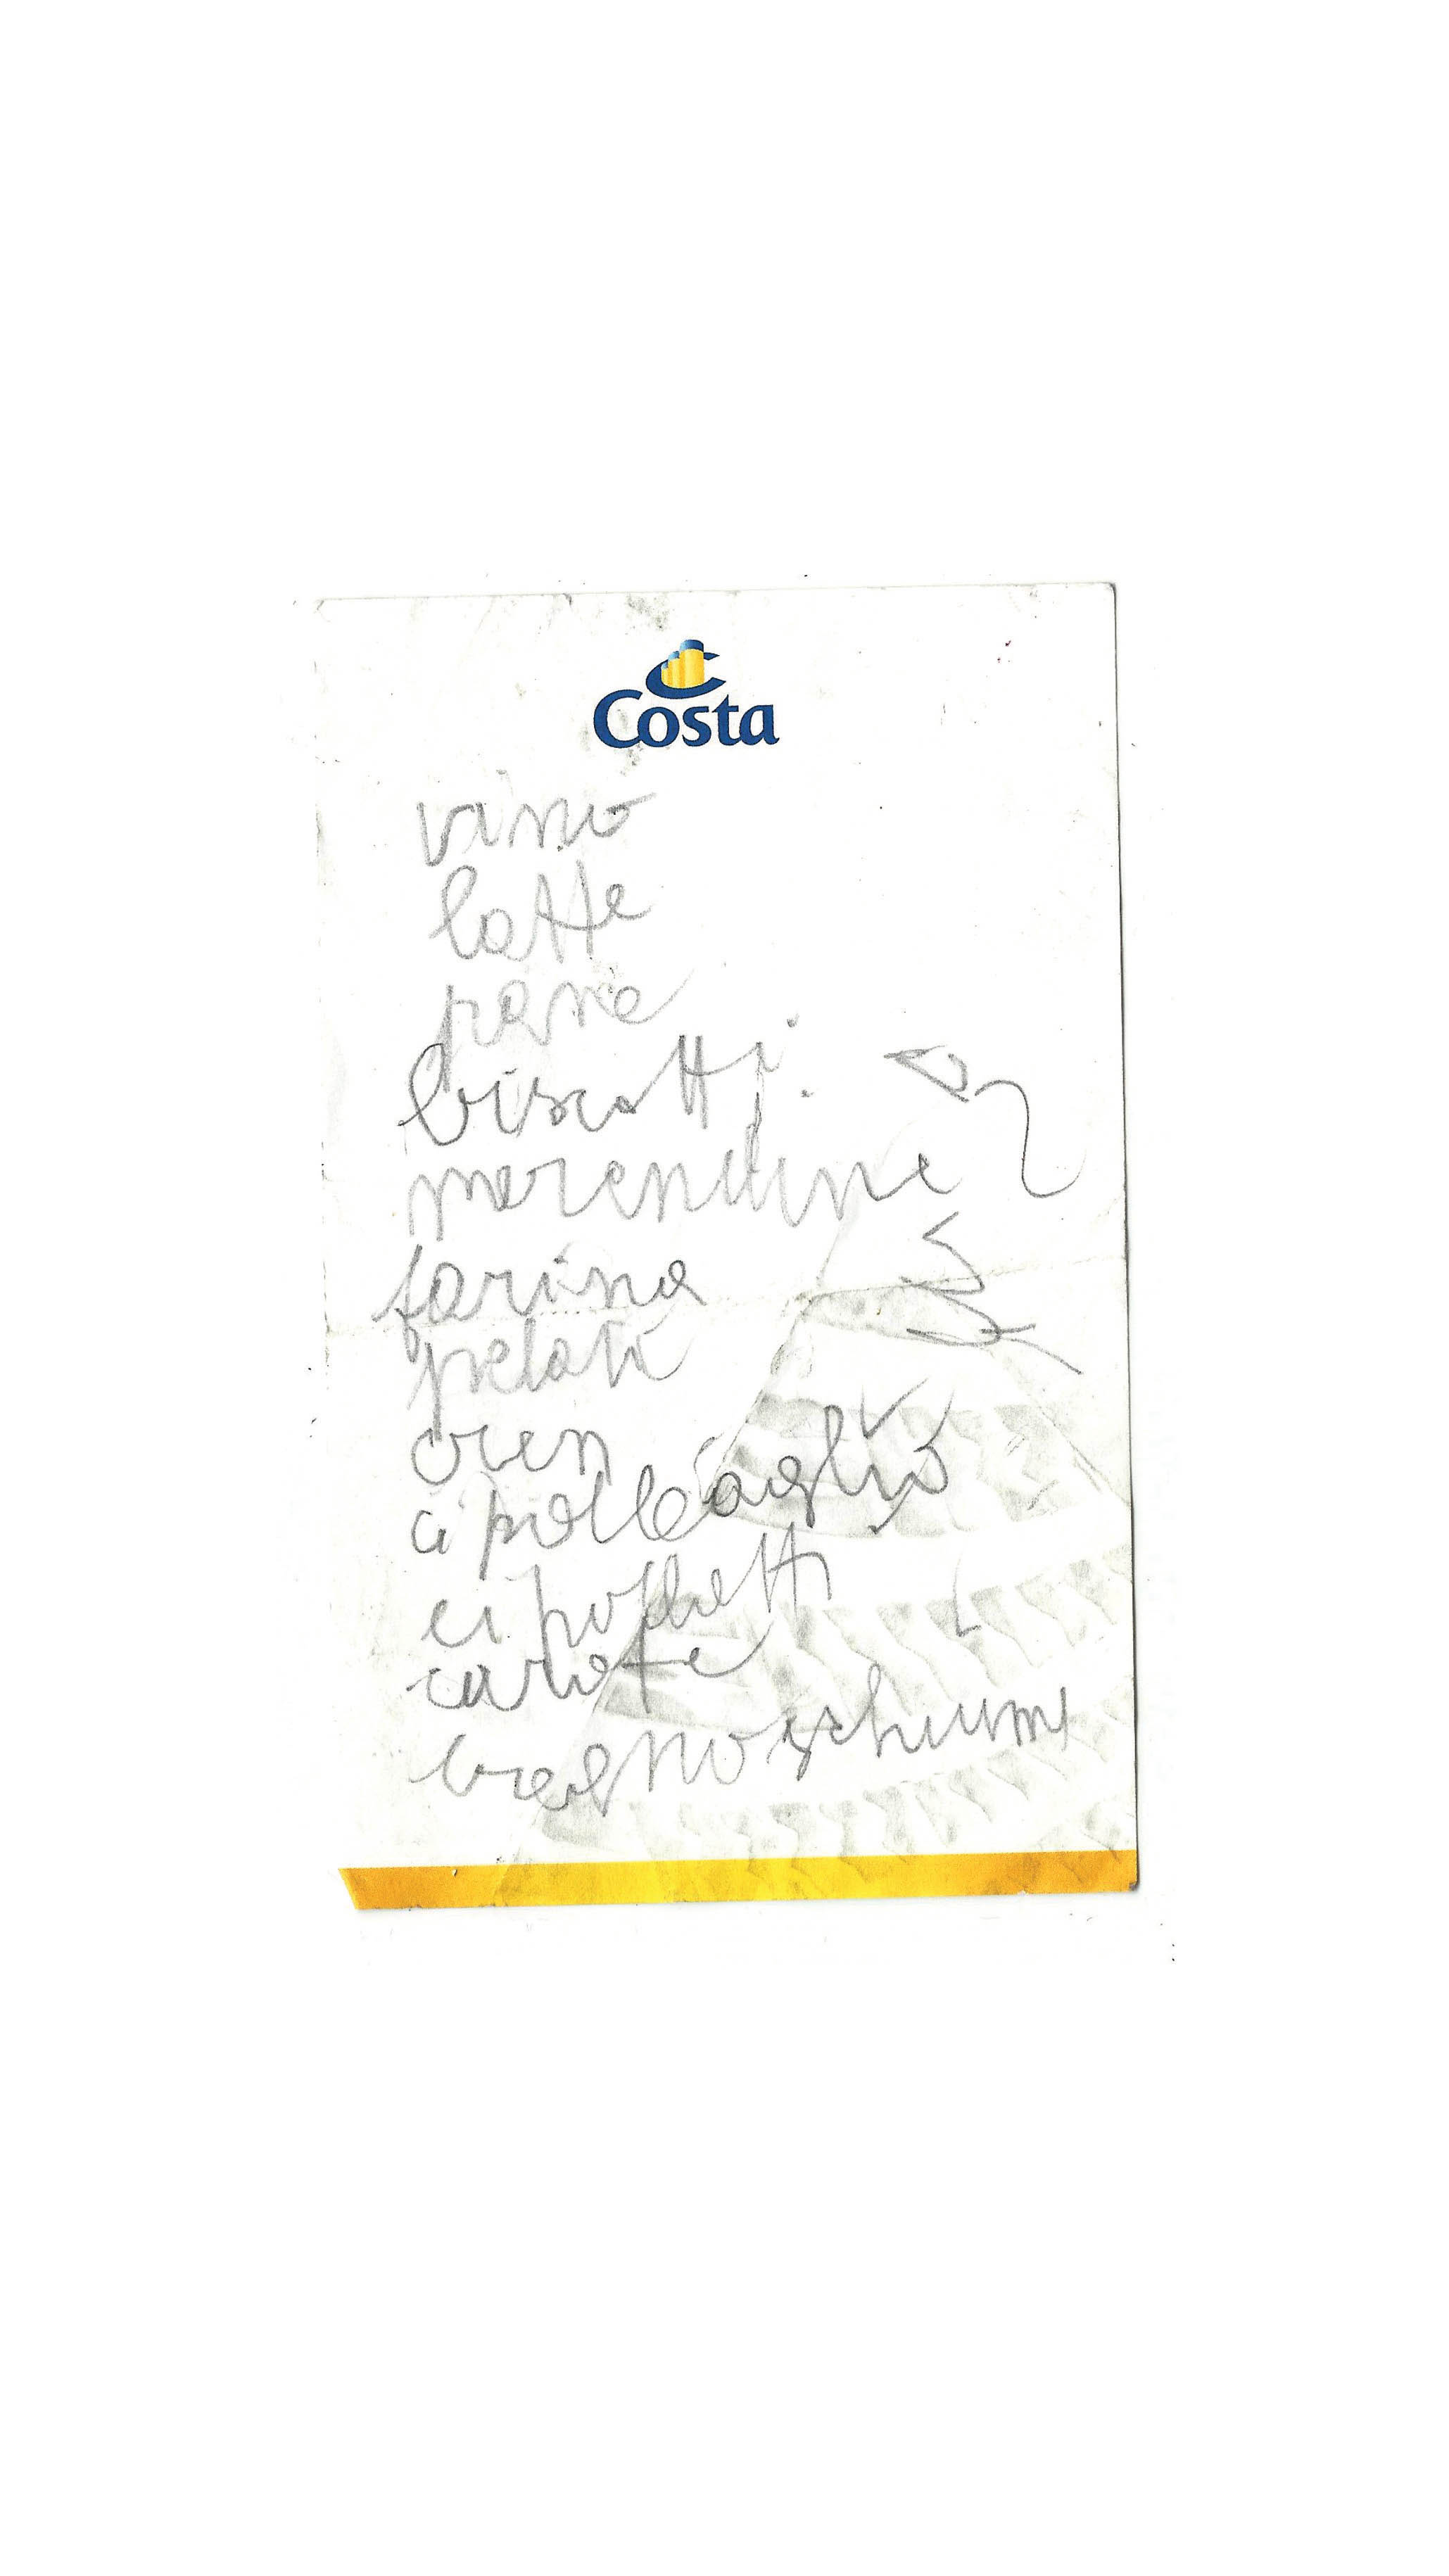 Costa
vino
latte
pane
biscotti
merendine
farina
pelati
cipolle aglio
cipolletti
carote
bagnoschium